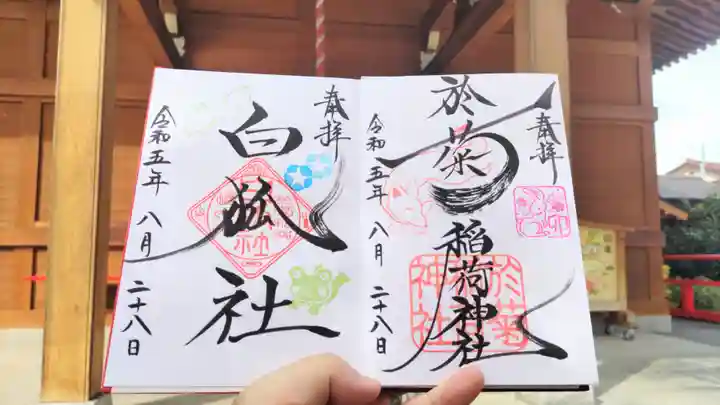 奉拝
於菊稲荷神社
令和五年 八月 二十八日
於菊
神社
奉拝
白狐社
令和五年 八月 二十八日